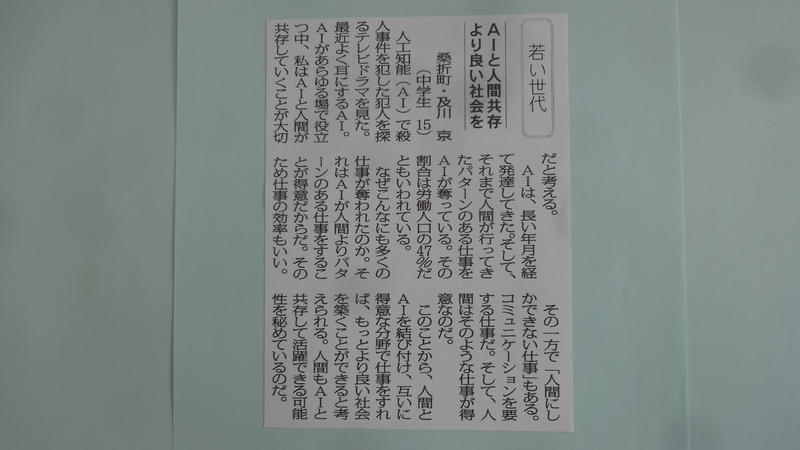 若い世代
AIと人間共存
より良い社会を
桑折町・及川 京
(中学生 15)
人工知能(AI)で殺
人事件を犯した犯人を探
るテレビドラマを見た。
最近よく耳にするAI。
AIがあらゆる場で役立
つ中、私はAIと人間が
共存していくことが大切
だと考える。
AIは、長い年月を経
て発達してきた。そして、
それまで人間が行ってき
たパターンのある仕事を
AIが奪っている。その
割合は労働人口の47%だ
ともいわれている。
なぜこんなにも多くの
仕事が奪われたのか。そ
れはAIが人間よりパタ
ーンのある仕事をするこ
とが得意だからだ。その
ため仕事の効率もいい。
その一方で「人間にし
かできない仕事」もある。
コミュニケーションを要
する仕事だ。そして、人
間はそのような仕事が得
意なのだ。
このことから、人間と
AIを結び付け、互いに
得意な分野で仕事をすれ
ば、もっとより良い社会
を築くことができると考
えられる。人間もAIと
共存して活躍できる可能
性を秘めているのだ。